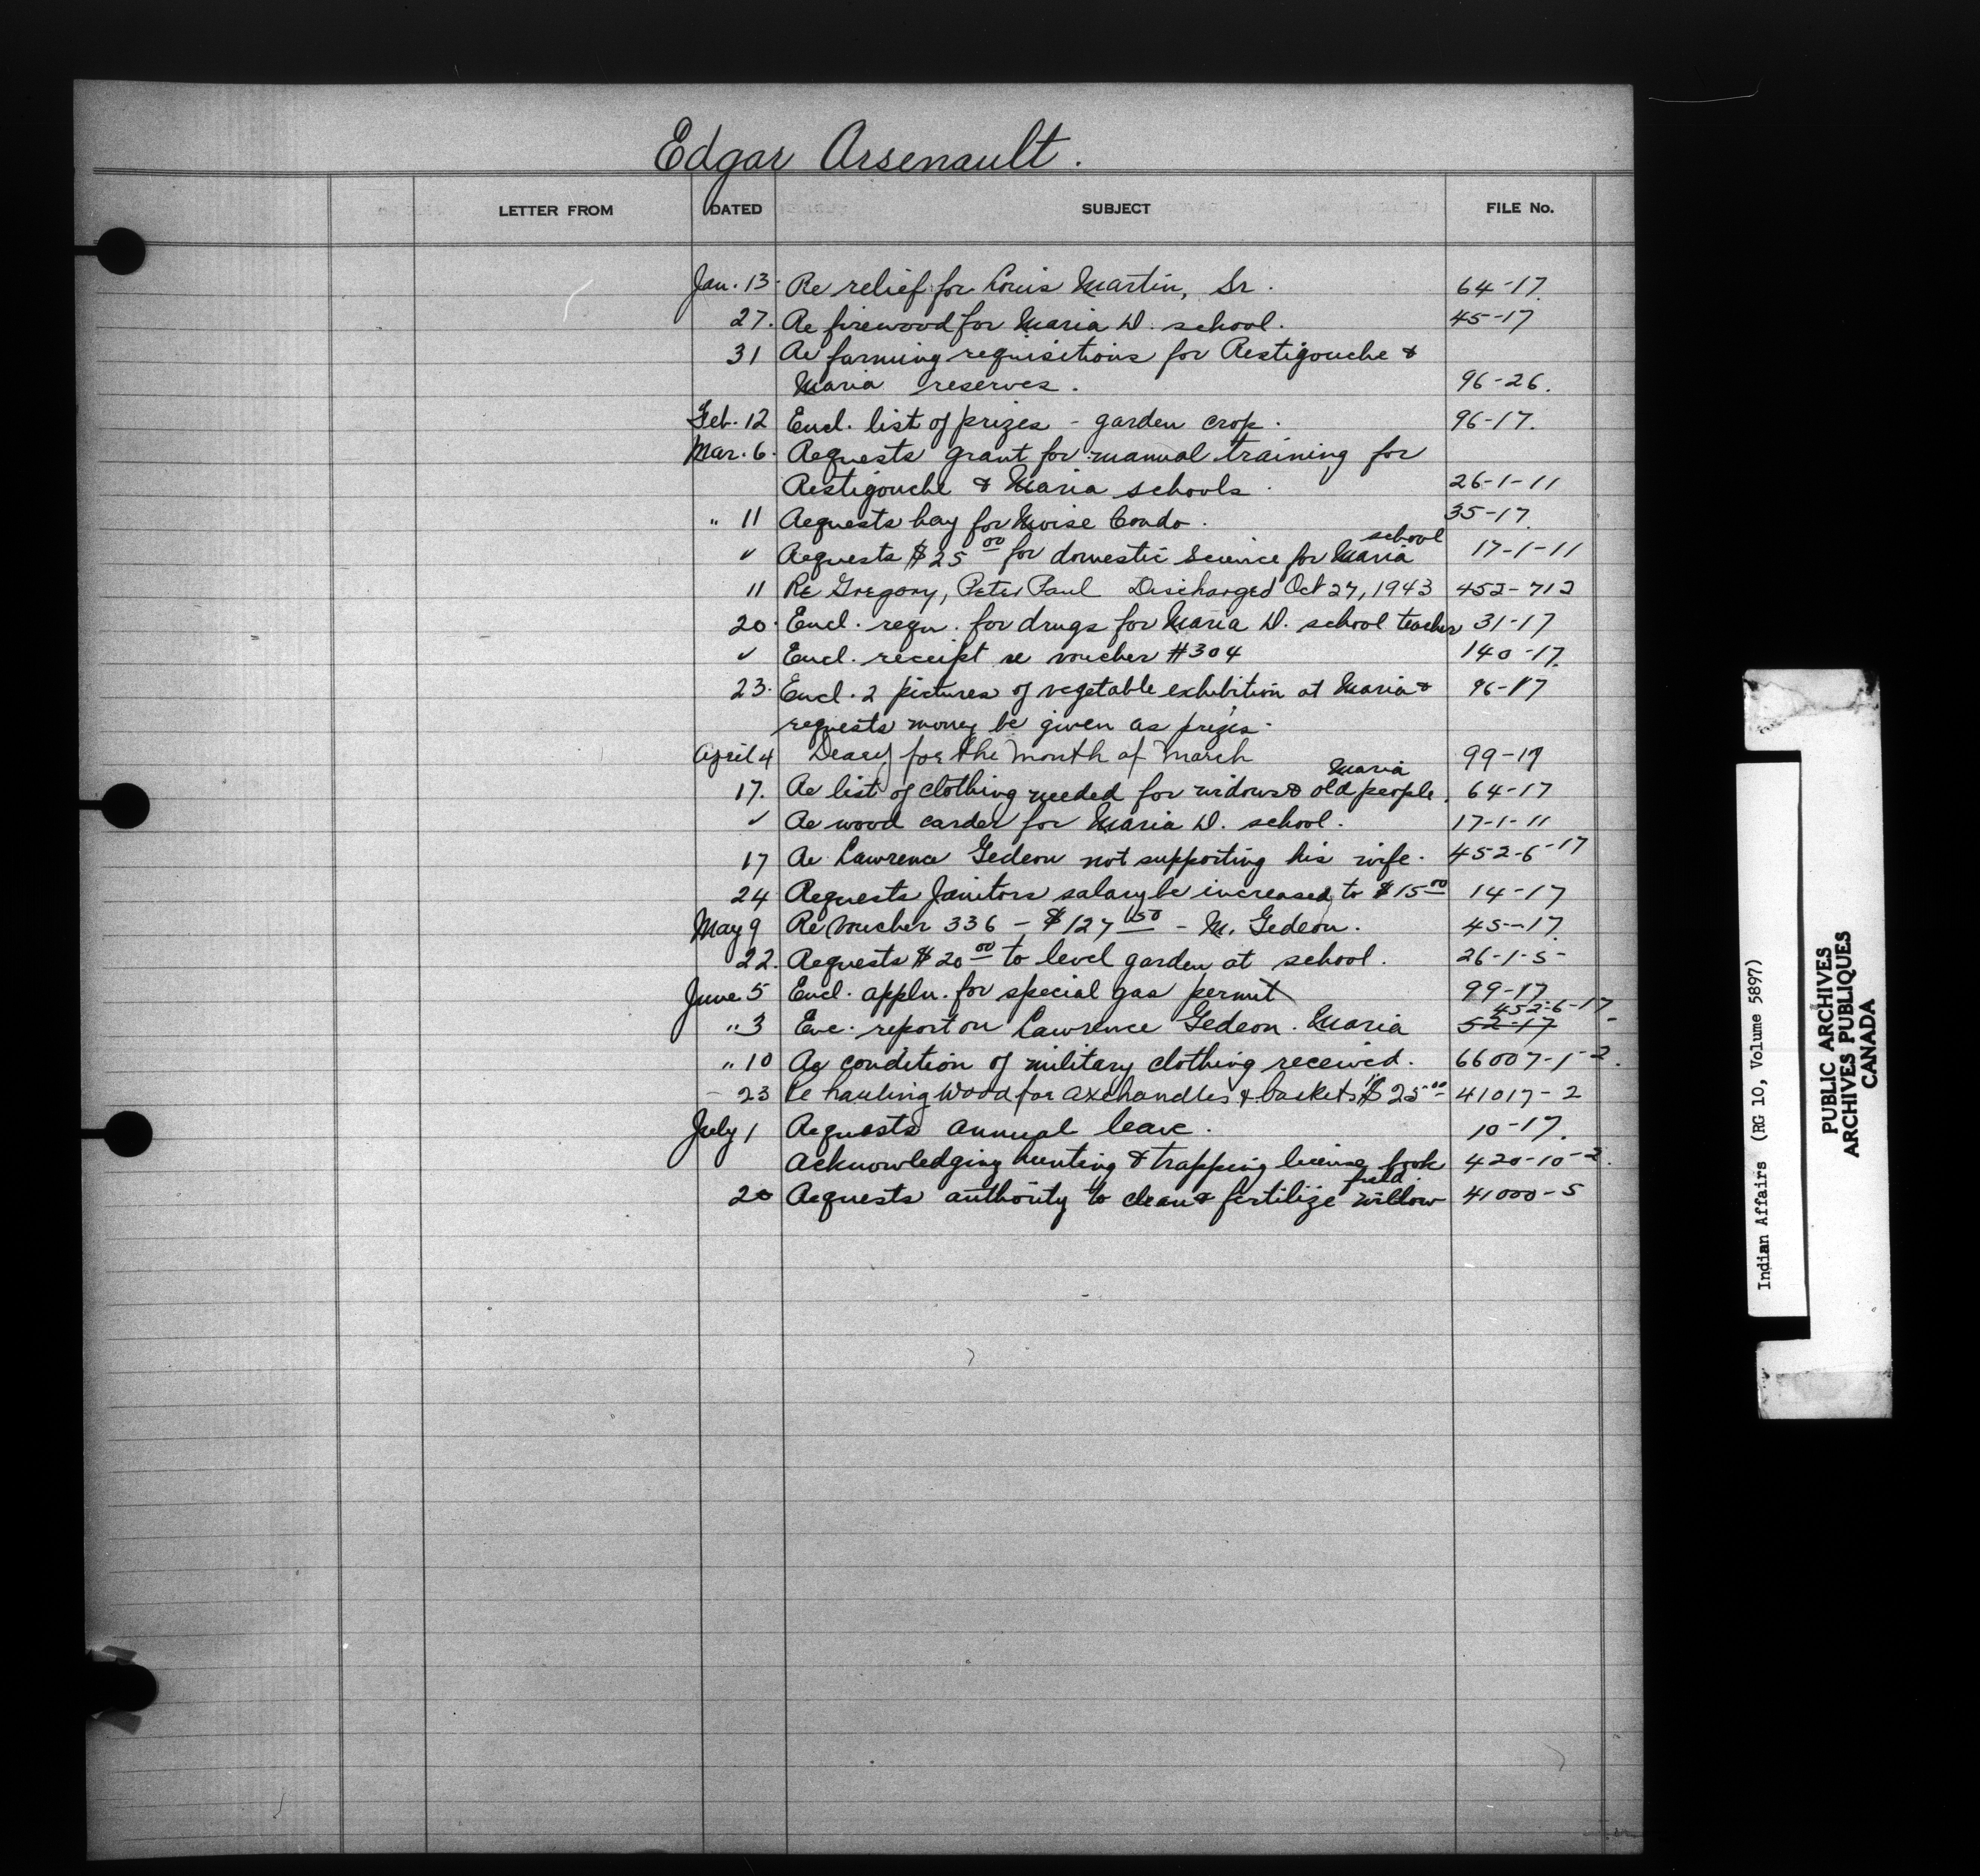 Edgar Arsenault.
LETTER FROM DATED SUBJECT FILE No.
Jan. 13. Re relief for Louis Martin, Sr. 64-17.
27. Re firewood for Maria D. school. 45-17
31 Re farming requisitions for Restigouche &
Maria reserves. 96-26.
Feb. 12 Encl. list of prizes - garden crop. 96-17.
Mar. 6. Requests grant for manual training for
Restigouche & Maria schools. 26-1-11
" 11 Requests hay for Moise Condo. 35-17.
✓ Requests $25 00 for domestic science for Maria school 17-1-11
11 Re Gregory, Peter Paul Discharged Oct 27, 1943 452-712
20. Encl. reqn. for drugs for Maria D. school teacher 31-17
✓ Encl. receipt re voucher #304 140-17.
23. Encl. 2 pictures of vegetable exhibition at Maria & 96-17
requests money be given as prizes.
April 4 Deary for the month of March 99-17
17. Re list of clothing needed for widows & Maria old people. 64-17
✓ Re wood carder for Maria D. school. 17-1-11
17 Re Lawrence Gedeon not supporting his wife. 452-6-17
24 Requests Janitors salary be increased to $15 00 14-17
May 9 Re Voucher 336 - $127 50 - M. Gedeon. 45-17.
22. Requests $20 00 to level garden at school. 26-1-5-
June 5 Encl. appln. for special gas permit 99-17
452-6-17
" 3 Enc. report on Lawrence Gedeon. Maria 52-17
" 10 Re condition of military clothing received. 66007-1-2.
- 23 Re hauling wood for axehandles & baskets $25 00 41017-2
July 1 Requests annual leave. 10-17.
Acknowledging hunting & trapping license book 420-10-2.
20 Requests authority to clean & fertilize willow field. 41000-5
Indian Affairs (RG 10, Volume 5897)
PUBLIC ARCHIVES
ARCHIVES PUBLIQUES
CANADA